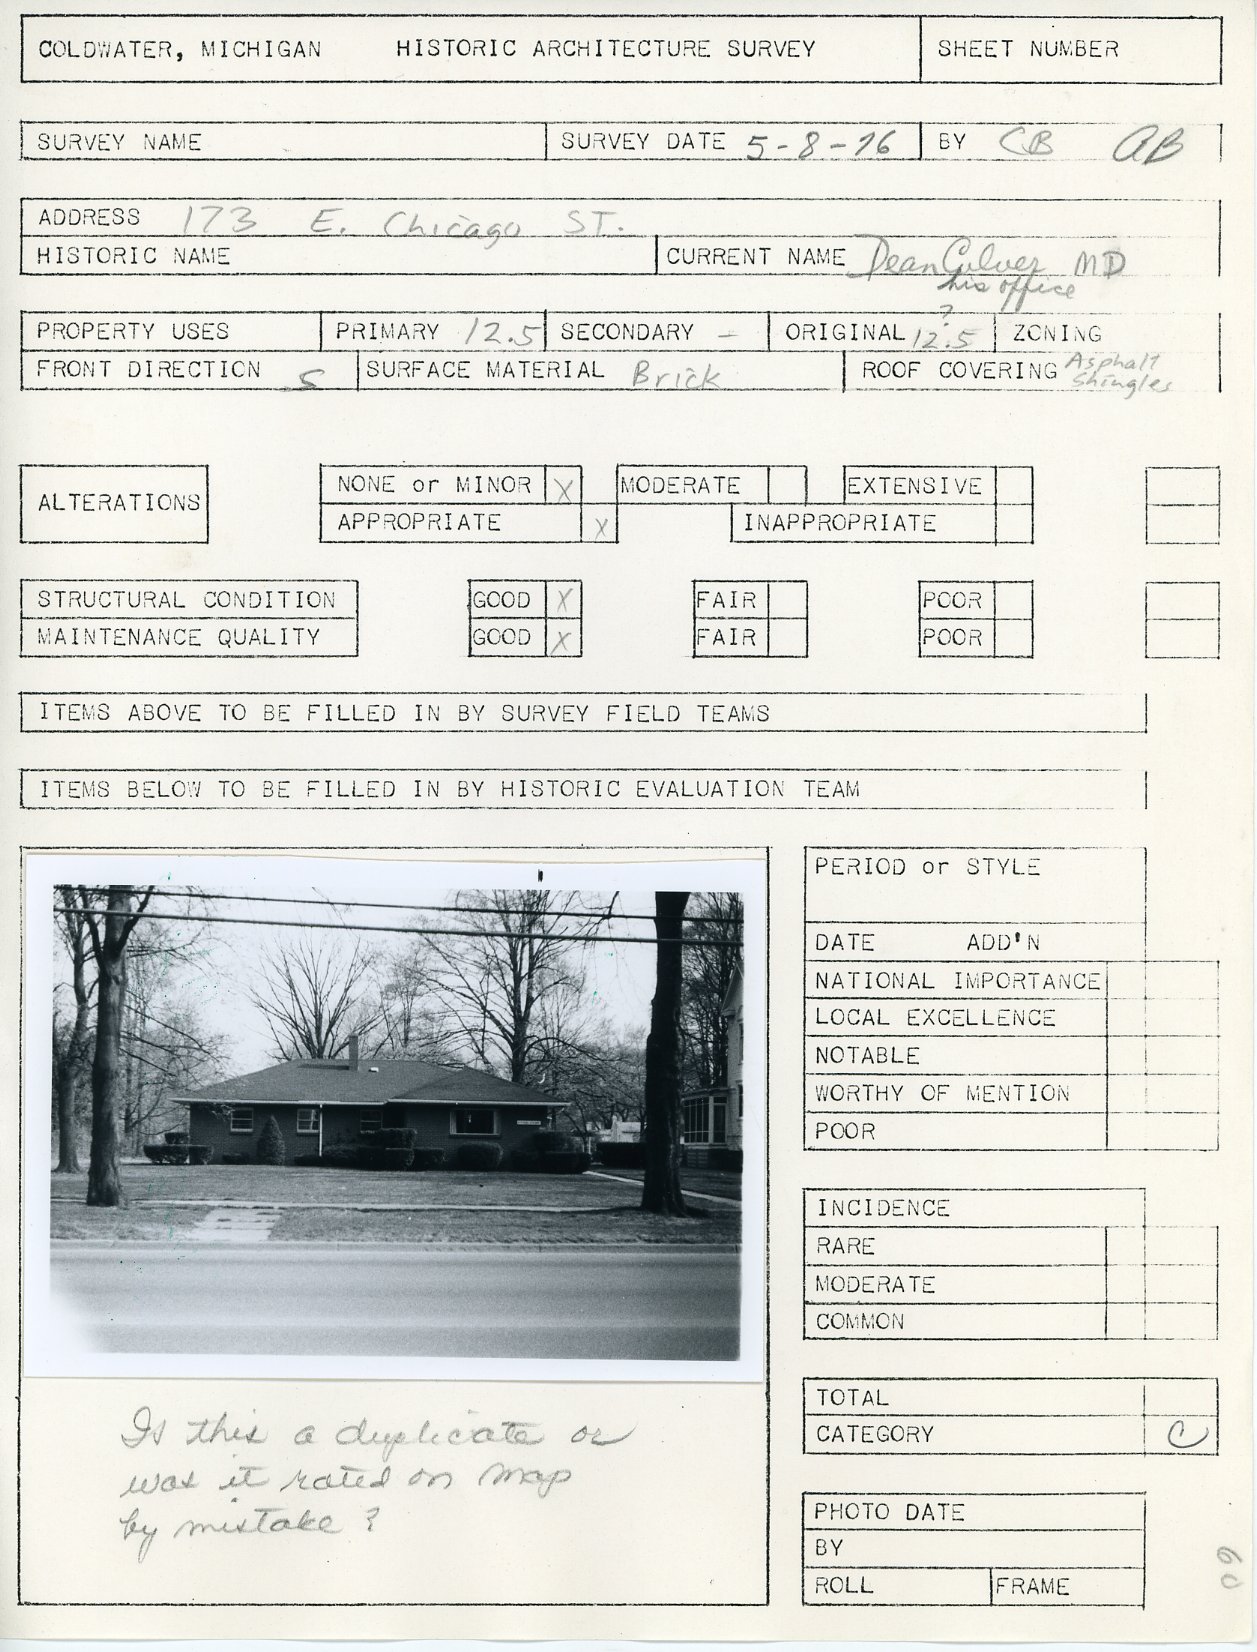 COLDWATER, MICHIGAN HISTORIC ARCHITECTURE SURVEY SHEET NUMBER
SURVEY NAME SURVEY DATE 5-8-76 BY CB AB
ADDRESS 173 E. Chicago ST.
HISTORIC NAME CURRENT NAME Dean Culver MD
his office
?
PROPERTY USES PRIMARY 12.5 SECONDARY - ORIGINAL 12.5 ZONING
FRONT DIRECTION S SURFACE MATERIAL Brick ROOF COVERING Asphalt
Shingles
ALTERATIONS NONE or MINOR X MODERATE EXTENSIVE
APPROPRIATE X INAPPROPRIATE
STRUCTURAL CONDITION GOOD X FAIR POOR
MAINTENANCE QUALITY GOOD X FAIR POOR
ITEMS ABOVE TO BE FILLED IN BY SURVEY FIELD TEAMS
ITEMS BELOW TO BE FILLED IN BY HISTORIC EVALUATION TEAM
PERIOD or STYLE
DATE ADD'N
NATIONAL IMPORTANCE
LOCAL EXCELLENCE
NOTABLE
WORTHY OF MENTION
POOR
INCIDENCE
RARE
MODERATE
COMMON
TOTAL
CATEGORY C
PHOTO DATE
BY
ROLL FRAME
Is this a duplicate or
was it rated on map
by mistake?